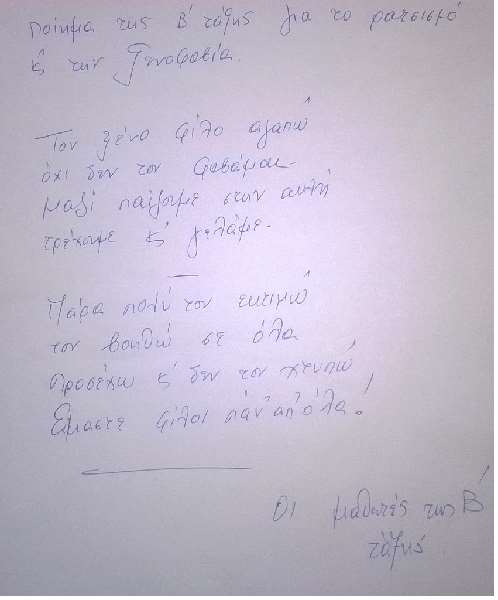 Ποίημα της Β΄ τάξης για το ρατσισμό
κ΄ την Ξενοφοβία.
Τον ξένο φίλο αγαπώ
όχι δεν τον φοβάμαι
Μαζί παίζουμε στην αυλή
τρέχουμε κ΄ γελάμε.
Πάρα πολύ τον εκτιμώ
τον βοηθώ σε όλα
προσέχω κ΄ δεν τον χτυπώ
Είμαστε φίλοι πάν' απ' όλα!
Οι μαθητές της Β΄
τάξης